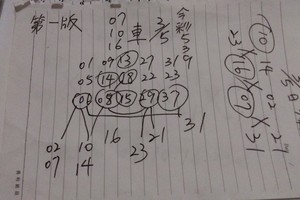 第一版
07
10
16
車
今彩539
01 09 13 27 31
05 14 18 22 23
01 08 15 29 37
16 21 31
02 10 23
07 14
10 14 02 27
23 16 07 31